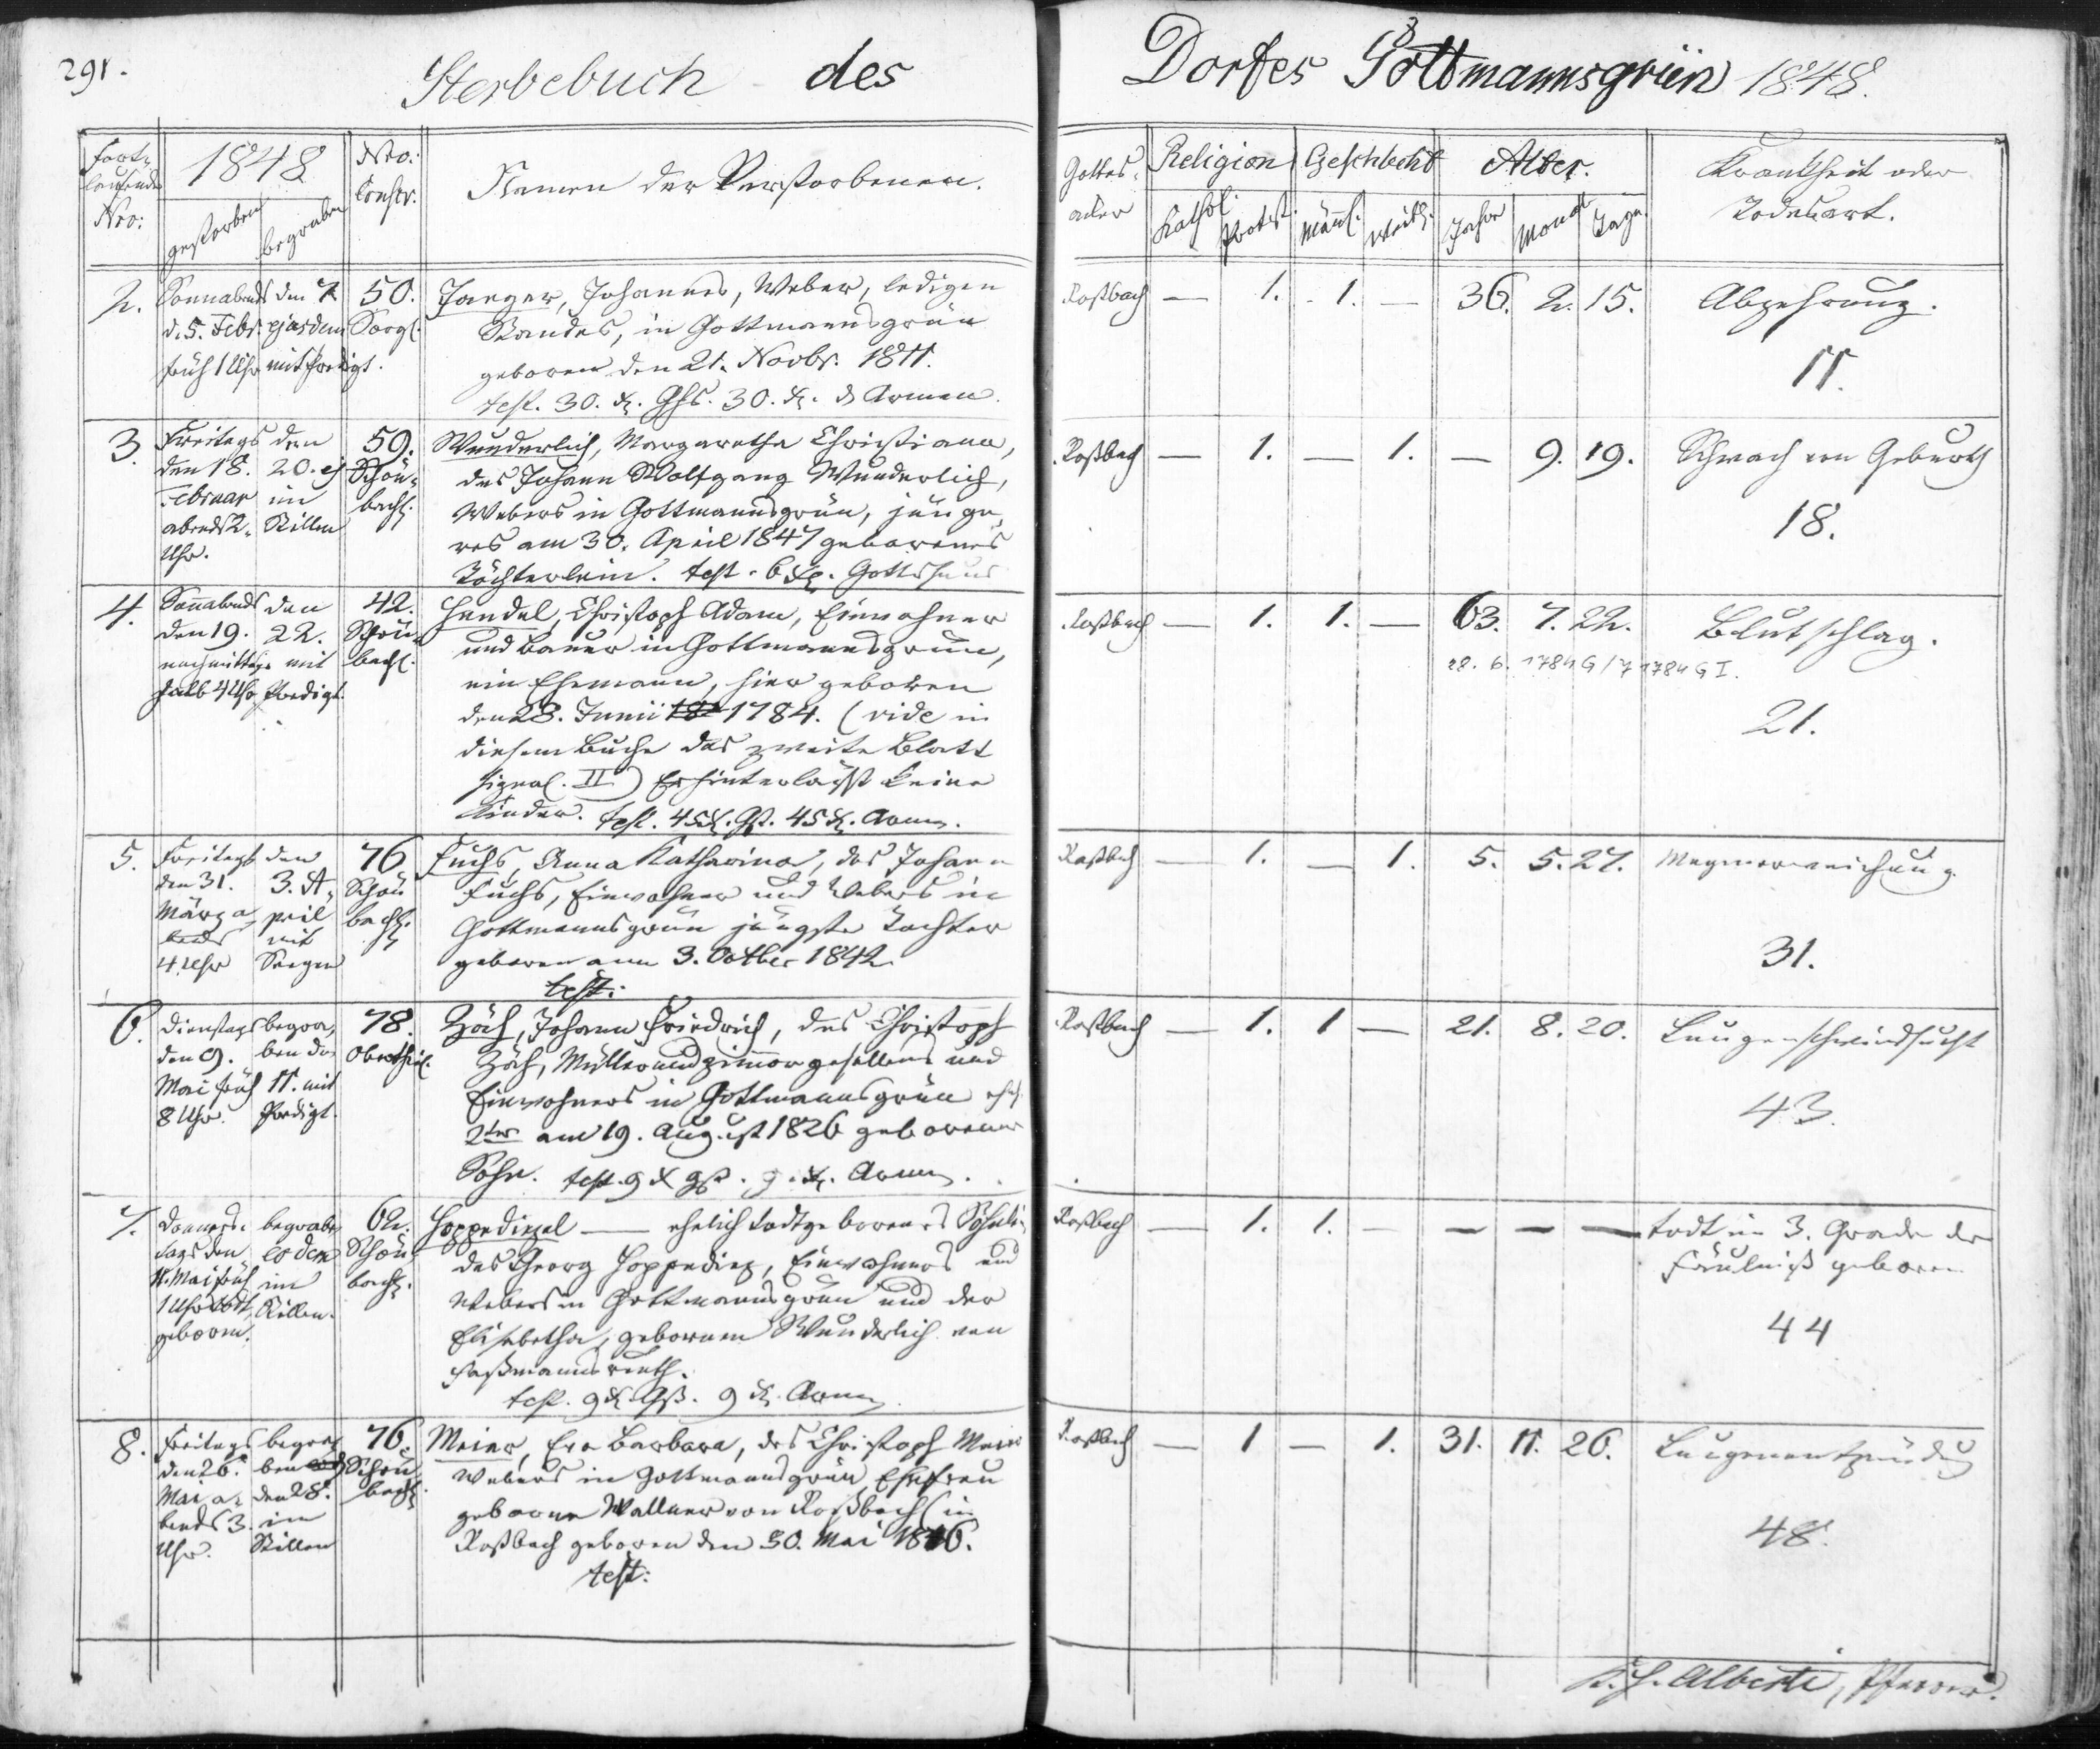 291.
Sterbebuch des Dorfes Gottmannsgrün 1848.
Fort-
laufende
Nro:
1848
gestorben
begraben
Nro:
Conscr.
Namen der Verstorbenen.
Gottes-
acker
Religion
Kathol.
Protest.
Geschlecht
Männl.
Weibl.
Alter.
Jahre
Monat
Tage
Krankheit oder
Todesart.
2.
Sonnabends
d. 5. Febr.
früh 1 Uhr
den 7.
ejusdem
mit Predigt.
50.
Sorgl.
Jaeger, Johannes, Weber, ledigen
Standes, in Gottmannsgrün
geboren den 21. Novbr. 1811.
test. 30. x. Ghs. 30. x. d Armen.
Roßbach — 1. 1. — 36. 2. 15.
Abzehrung.
11.
3.
Freitags
den 18.
Februar
abends 2.
Uhr.
den
20. ej
im
Stillen
59.
Schön-
bachl.
Wunderlich, Margaretha Christiana,
des Johann Wolfgang Wunderlich,
Webers in Gottmannsgrün, jünge-
res am 30. April 1847 geborenes
Töchterlein. test. 6 x. Gotteshaus
Roßbach — 1. — 1. — 9. 19.
Schwach von Geburth
18.
4.
Sonnabends
den 19.
nachmittags
halb 4 Uhr
den
22.
mit
Predigt.
42.
Schön-
bachl.
Hendel, Christoph Adam, Einwohner
und Bauer in Gottmannsgrün,
ein Ehemann, hier geboren
den 28. Junii 18 1784. (vide in
diesem Buche das zweite Blatt
signal. II) Er hinterläßt keine
Kinder. test. 45 x. Gh. 45 x. Armen.
Roßbach — 1. 1. — 63. 7. 22.
Blutschlag.
28. 6. 1784 G / 7 1784 G I.
21.
5.
Freitags
den 31.
März a-
bends
4 Uhr
den
3. A-
pril
mit
Seegen
76
Schön
bachl.
Fuchs, Anna Katharina, des Johann
Fuchs, Einwohner und Webers in
Gottmannsgrün jüngste Tochter
geboren am 3. Octber 1842.
test:
Roßbach — 1. — 1. 5. 5. 27.
Magenerweichung.
31.
6.
Dienstags
den 9.
Mai früh
8 Uhr.
begra-
ben den
11. mit
Predigt.
78.
Obertheil.
Zöh, Johann Friedrich, des Christoph
Zöh, Müller und Zimmergesellens und
Einwohners in Gottmannsgrün ehel.
2ter am 19. August 1826 geborener
Sohn. test. 9 x gh. 9. x. Armen.
Roßbach — 1. 1 — 21. 8. 20.
Lungenschwindsucht
43.
7.
Donners-
tags den
11. Mai früh
1 Uhr todt
geboren.
begraben
eodem
im
Stillen.
62.
Schön-
bachl.
Hoppedizel — ehelich todtgeborenes Söhnl.
des Georg Hoppediez, Einwohners und
Webers in Gottmannsgrün und der
Elisabetha, gebornen Wunderlich von
Faßmannsreuth.
test. 9 x. Gh. 9 x. Armen
Roßbach — 1. 1. — — — —
todt im 3. Grade der
Fäulniß geboren
44
8.
Freitags
den 26.
Mai a-
bends 3.
Uhr.
begra-
ben
den 28.
im
Stillen
76.
Schön
bachl.
Meier, Eva Barbara, des Christoph Meier
Webers in Gottmannsgrün Ehefrau
geborne Wallner von Roßbach (in
Roßbach geboren den 30. Mai 1816.
test:
Roßbach — 1 — 1. 31. 11. 26.
Lungenentzündung
48.
Alberti, Pfarrer.